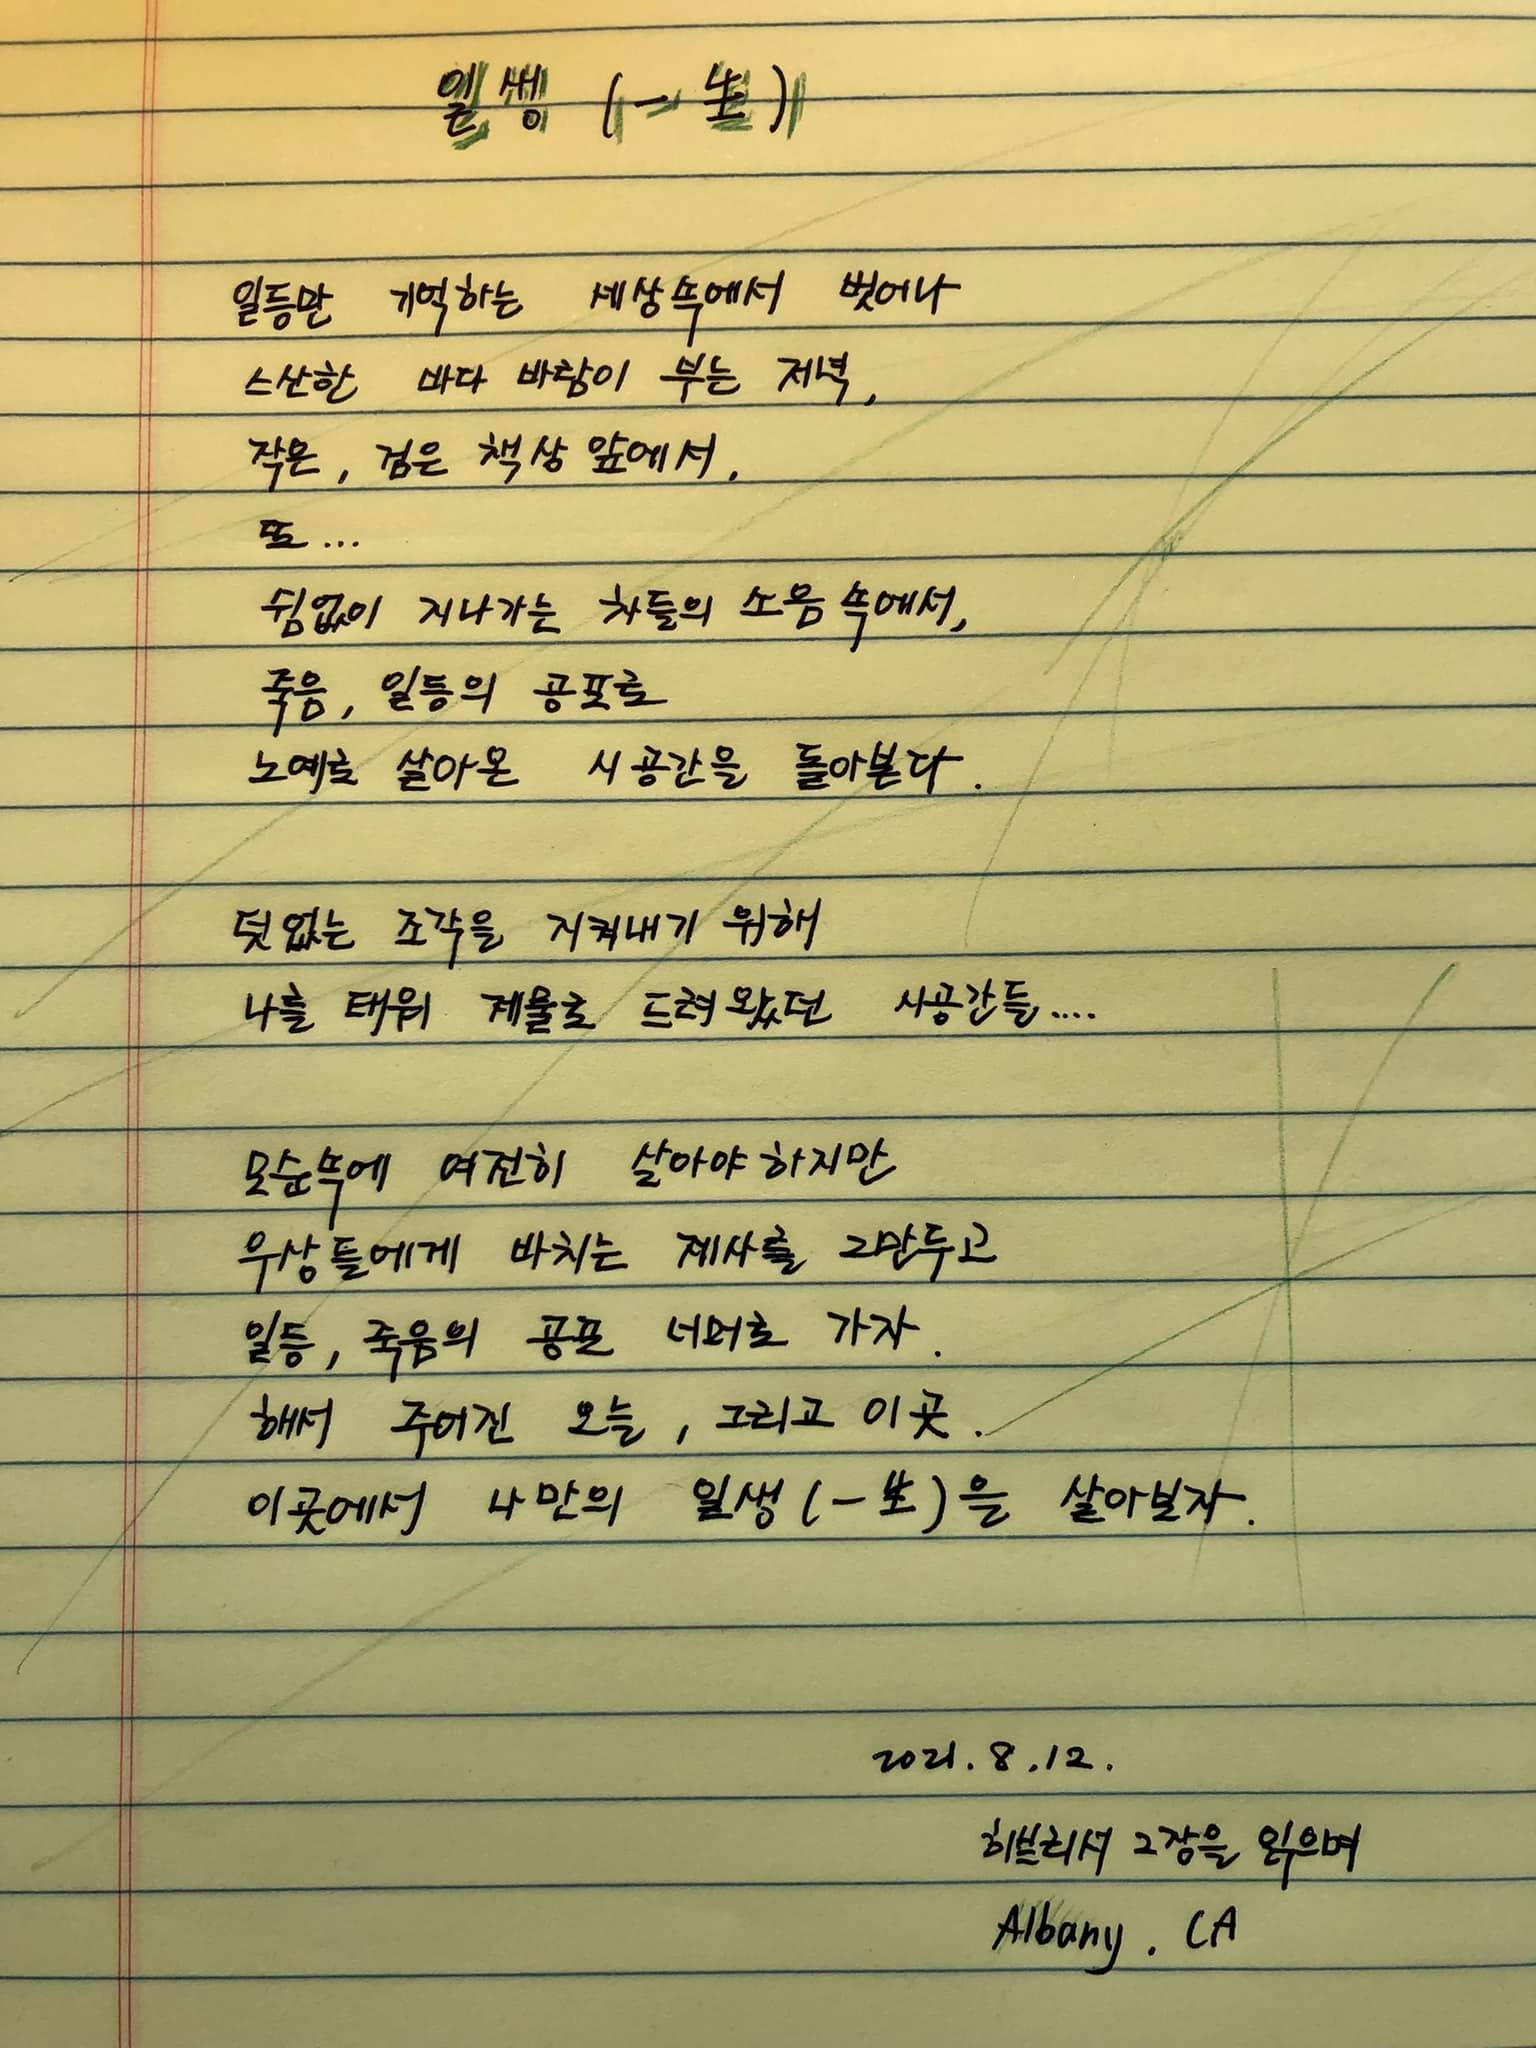 일쌩 (一生)
일등만 기억하는 세상속에서 벗어나
스산한 바다 바람이 부는 저녁,
작은, 검은 책상 앞에서,
또...
쉼없이 지나가는 차들의 소음 속에서,
죽음, 일등의 공포로
노예로 살아온 시공간을 돌아본다.
덧없는 조각을 지켜내기 위해
나를 태워 제물로 드려왔던 시공간들....
모순속에 여전히 살아야하지만
우상들에게 바치는 제사를 그만두고
일등, 죽음의 공포 너머로 가자.
해서 주어진 오늘, 그리고 이곳.
이곳에서 나만의 일생(一生)을 살아보자.
2021. 8. 12.
히브리서 2장을 읽으며
Albany. CA